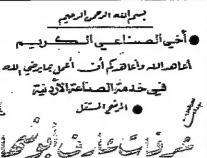 بسم الله الرحمن الرحيم
● أخي الصناعي الكريم
أعاهد الله وأعاهدكم أن أعمل بما يرضي الله
في خدمة الصناعة الأردنية
● المرشح المستقل
عرفات عارف أبو شخا